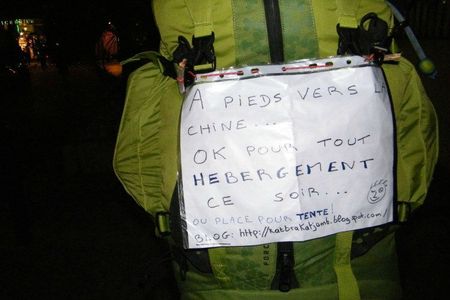 A PIEDS VERS LA
CHINE...
OK POUR TOUT
HEBERGEMENT
CE SOIR...
OU PLACE POUR TENTE!
BLOG: http://katbrakatjamb.blogspot.com/